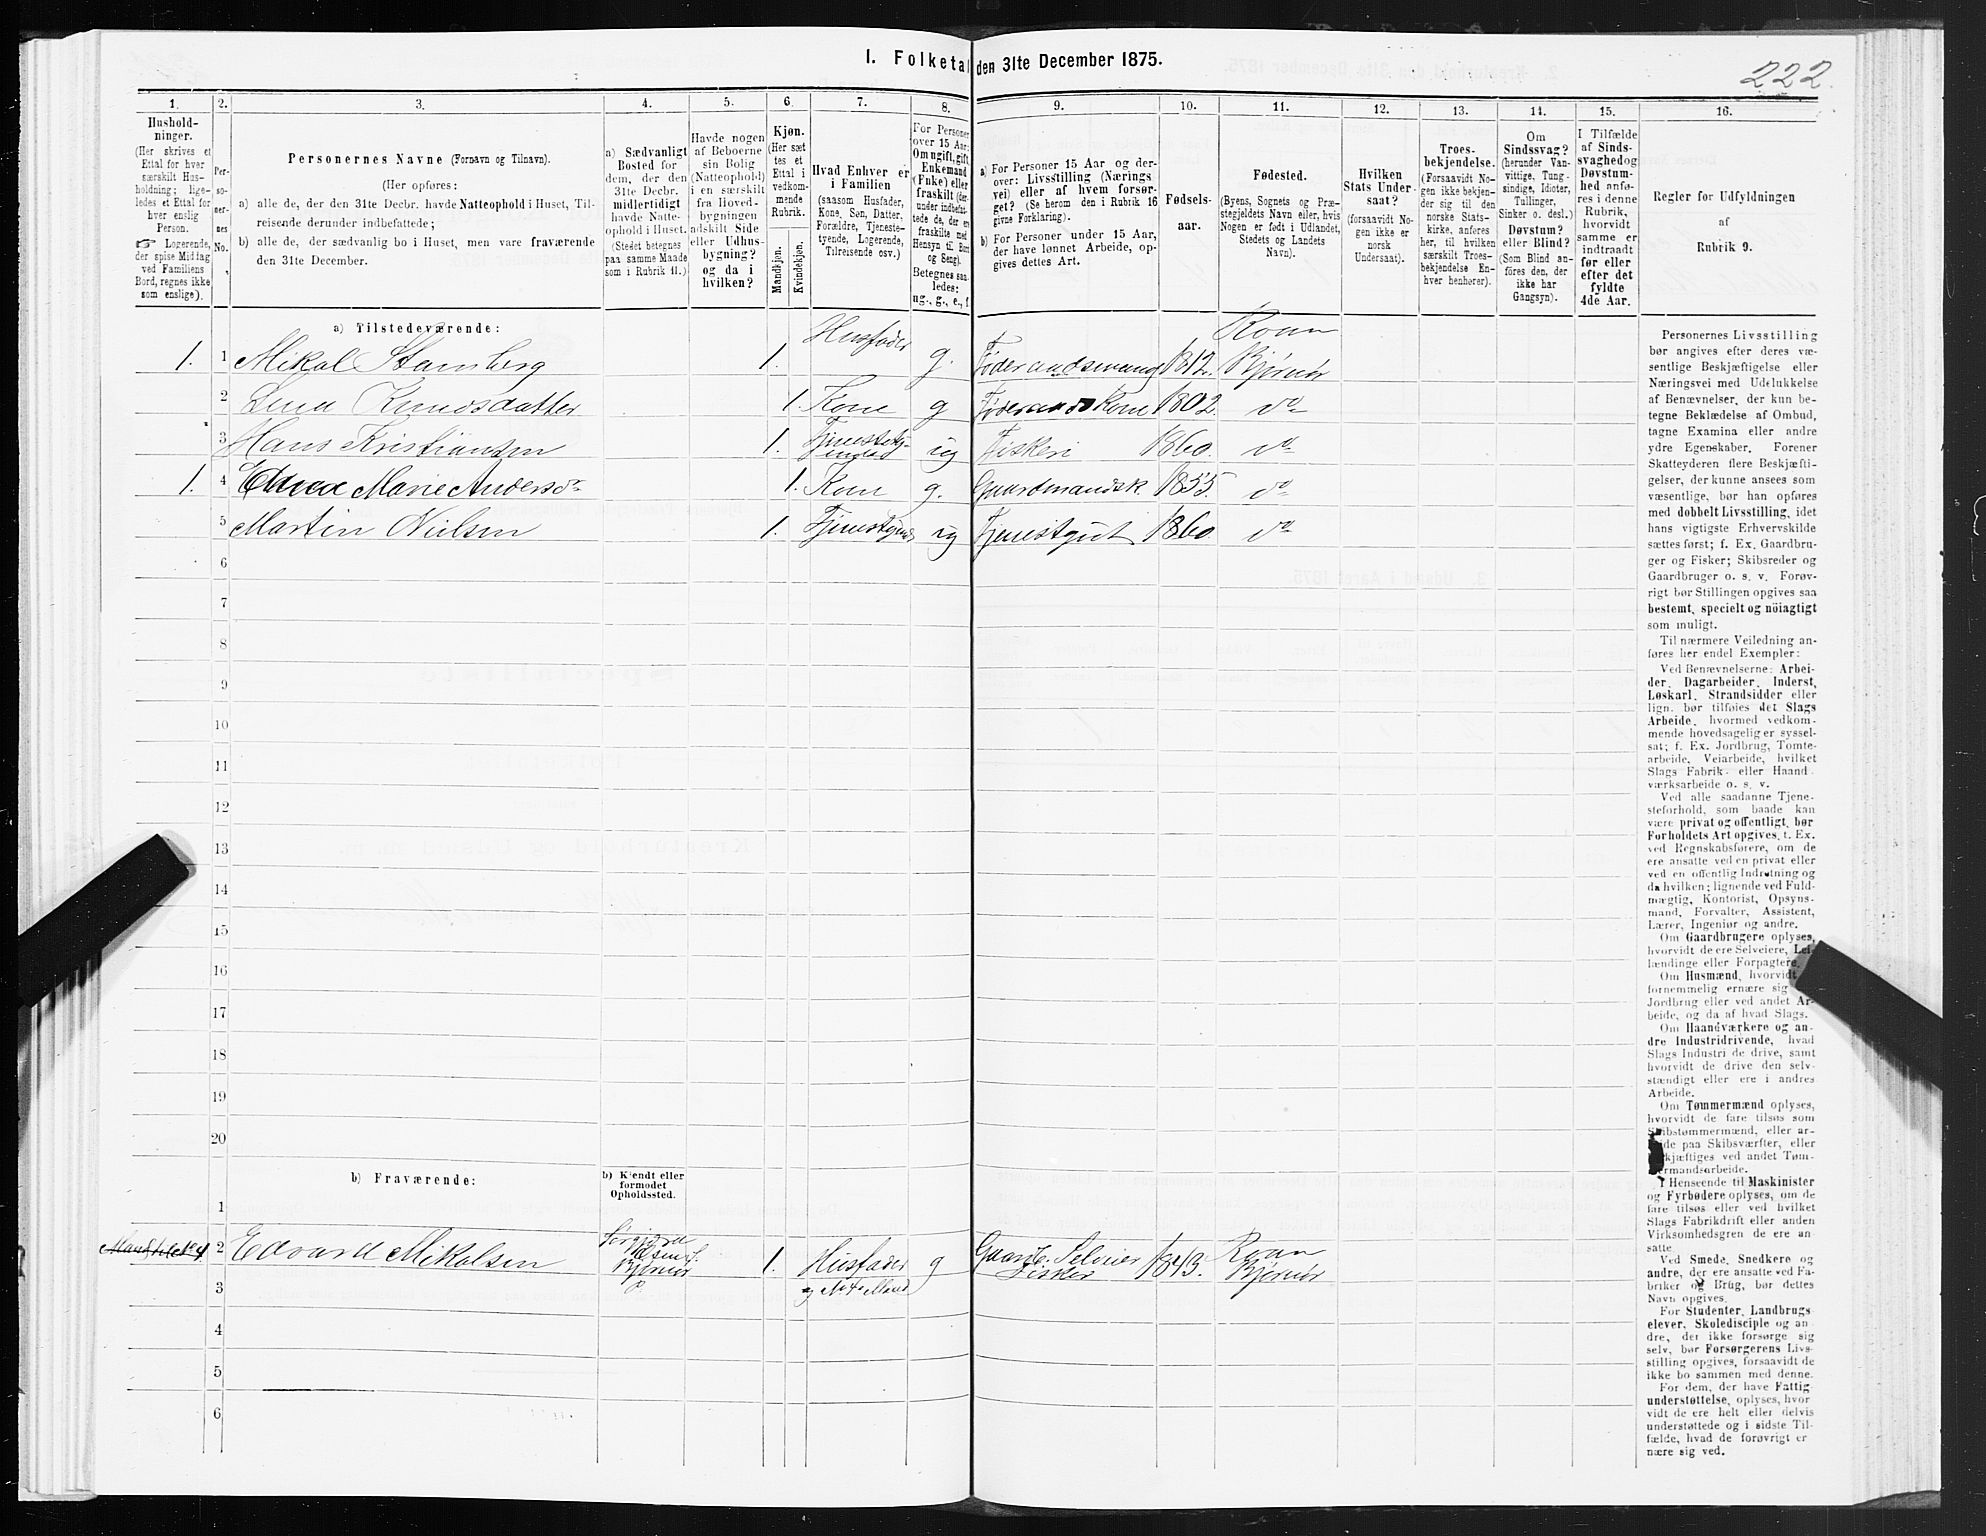 I. Folketal den 31te December 1875.
222.
1. 2. 3. 4. 5. 6. 7. 8. 9. 10. 11. 12. 13. 14. 15. 16.
Husholdninger.
(Her skrives et
Ettal for hver
særskilt Husholdning;
ligeledes et Ettal for
hver enslig
Person.
☞ Logerende,
der spise Middag
ved Familiens
Bord, regnes ikke
som enslige).
Personernes
No.
Personernes Navne (Fornavn og Tilnavn).
(Her opføres:
a) alle de, der den 31te Decbr. havde Natteophold i Huset, Tilreisende
derunder indbefattede;
b) alle de, der sædvanlig bo i Huset, men vare fraværende
den 31te December.
a) Sædvanligt
Bosted for
dem, der den
31te Decbr.
midlertidigt
havde Natteophold
i Huset.
(Stedet betegnes
paa samme Maade
som i Rubrik 11.)
Havde nogen
af Beboerne
sin Bolig
(Natteophold)
i en særskilt
fra Hovedbygningen
adskilt Side
eller Udhusbygning?
og da i
hvilken?
Kjøn.
(Her sættes
et
Ettal i
vedkommende
Rubrik.
Mandkjøn.
Kvindekjøn.
Hvad Enhver er
i Familien
(saasom Husfader,
Kone, Søn, Datter,
Forældre, Tjenestetyende,
Logerende,
Tilreisende osv.)
For Personer
over 15 Aar:
Om ugift, gift,
Enkemand
(Enke) eller
fraskilt (derunder
indbefattede
de, der ere
fraskilte med
Hensyn til Bord
og Seng).
Betegnes saaledes:
ug., g., e., f.
a) For Personer 15 Aar og derover:
Livsstilling (Næringsvei)
eller af hvem forsørget?
(Se herom den i Rubrik 16
givne Forklaring).
b) For Personer under 15 Aar,
der have lønnet Arbeide, opgives
dettes Art.
Fødselsaar.
Fødested.
(Byens, Sognets og Præstegjeldets
Navn eller, hvis
Nogen er født i Udlandet,
Stedets og Landets
Navn).
Hvilken
Stats Undersaat?
(forsaavidt Nogen
ikke er
norsk
Undersaat).
Troesbekjendelse.
(Forsaavidt Nogen
ikke bekjender
sig til den
norske Statskirke,
anføres
her, til hvilken
særskilt Troesbekjendelse
Enhver
henhører).
Om
Sindssvag?
(herunder Vanvittige,
Tungsindige,
Idioter,
Tullinger,
Sinker o. desl.)
Døvstum?
eller Blind?
(Som Blind anføres
den, der
ikke har
Gangsyn).
I Tilfælde
af Sindssvaghed og
Døvstumhed
anføres
i denne
Rubrik,
hvorvidt
samme er
indtraadt
før eller
efter det
fyldte
4de Aar.
Regler for Udfyldningen
af
Rubrik 9.
a) Tilstedeværende:
1. 1 Mikal Stamberg 1. Husfader g. Føderaadsmand 1812. Roan Bjørnør
2 Lina Knudsdatter 1. Kone g Føderaads Kone 1802. do
3 Hans Kristiansen 1. ug Fiskeri 1860. do
1. 4 Marie Andersd. 1. Kone g. Gaardmandsk. 1855. do
5 Martin Nielsen 1. ug Tjenestgut 1860. do
6
7
8
9
10
11
12
13
14
15
16
17
18
19
20
b) Fraværende:
b) Kjendt eller
formodet
Opholdssted.
1
2 Edvard Mikalsen Bjørnør 1. Husfader og No 4s Mand g Gaardb. Selveier Fisker 1843. Roan Bjørnør
3
4
5
6
Personernes Livsstilling
bør angives efter deres væsentlige
Beskjæftigelse eller
Næringsvei med Udelukkelse
af Benævnelser, der kun betegne
Beklædelse af Ombud,
tagne Examina eller andre
ydre Egenskaber. Forener
Skatteyderen flere Beskjæftigelser,
der kunne ansees som
væsentlige, bør han opføres
med dobbelt Livsstilling, idet
hans vigtigste Erhvervskilde
sættes først; f. Ex. Gaardbruger
og Fisker; Skibsreder og
Gaardbruger o. s. v. Forøvrigt
bør Stillingen opgives saa
bestemt, specielt og nöiagtigt
som muligt.
Til nærmere Veiledning anføres
her endel Exempler:
Ved Benævnelserne: Arbeider,
Dagarbeider, Inderst,
Løskarl, Strandsidder eller
lign. bør tilføies det Slags
Arbeide, hvormed vedkommende
hovedsagelig er sysselsat;
f. Ex. Jordbrug, Tomtearbeide,
Veiarbeide, hvilket
Slags Fabrik- eller Haandværksarbeide
o. s. v.
Ved alle saadanne Tjenesteforhold,
som baade kan
være privat og offentligt, bør
Forholdets Art opgives, t. Ex.
ved Regnskabsførere, om de
ere ansatte ved en privat eller
ved en offentlig Indretning og
da hvilken; lignende ved Fuldmægtig,
Kontorist, Opsynsmand,
Forvalter, Assistent,
Lærer, Ingeniør og andre.
Om Gaardbrugere oplyses,
hvorvidt de ere Selveiere, Leilændinge
eller Forpagtere.
Om Husmænd, hvorvidt
fornemmelig ernære sig
Jordbrug eller ved andet Arbeide,
og da af hvad Slags.
Om Haandværkere og andre
Industridrivende, hvad
Slags Industri de drive, samt
hvorvidt de drive den selvstændigt
eller ere i andres
Arbeide.
Om Tømmermænd oplyses,
hvorvidt de fare tilsøs som
Skibstømmermænd, eller arbeide
paa Skibsværfter, eller
beskjæftiges ved andet Tømmermandsarbeide.
I Henseende til Maskinister
og Fyrbødere oplyses, om de
fare tilsøs eller ved hvilket
Slags Fabrikdrift eller anden
Virksomhedsgren de ere ansatte.
Ved Smede, Snedkere og
andre, der ere ansatte ved Fabriker
og Brug, bør dettes
Navn opgives.
For Studenter, Landbrugselever,
Skoledisciple og andre,
der ikke forsørge sig
selv, bør Forsørgerens Livsstilling
opgives, forsaavidt de
ikke bo sammen med denne.
For dem, der have Fattigunderstøttelse,
oplyses, hvorvidt
de ere helt eller delvis
understøttede og i sidste Tilfælde,
hvad de forøvrigt ernære
sig ved.